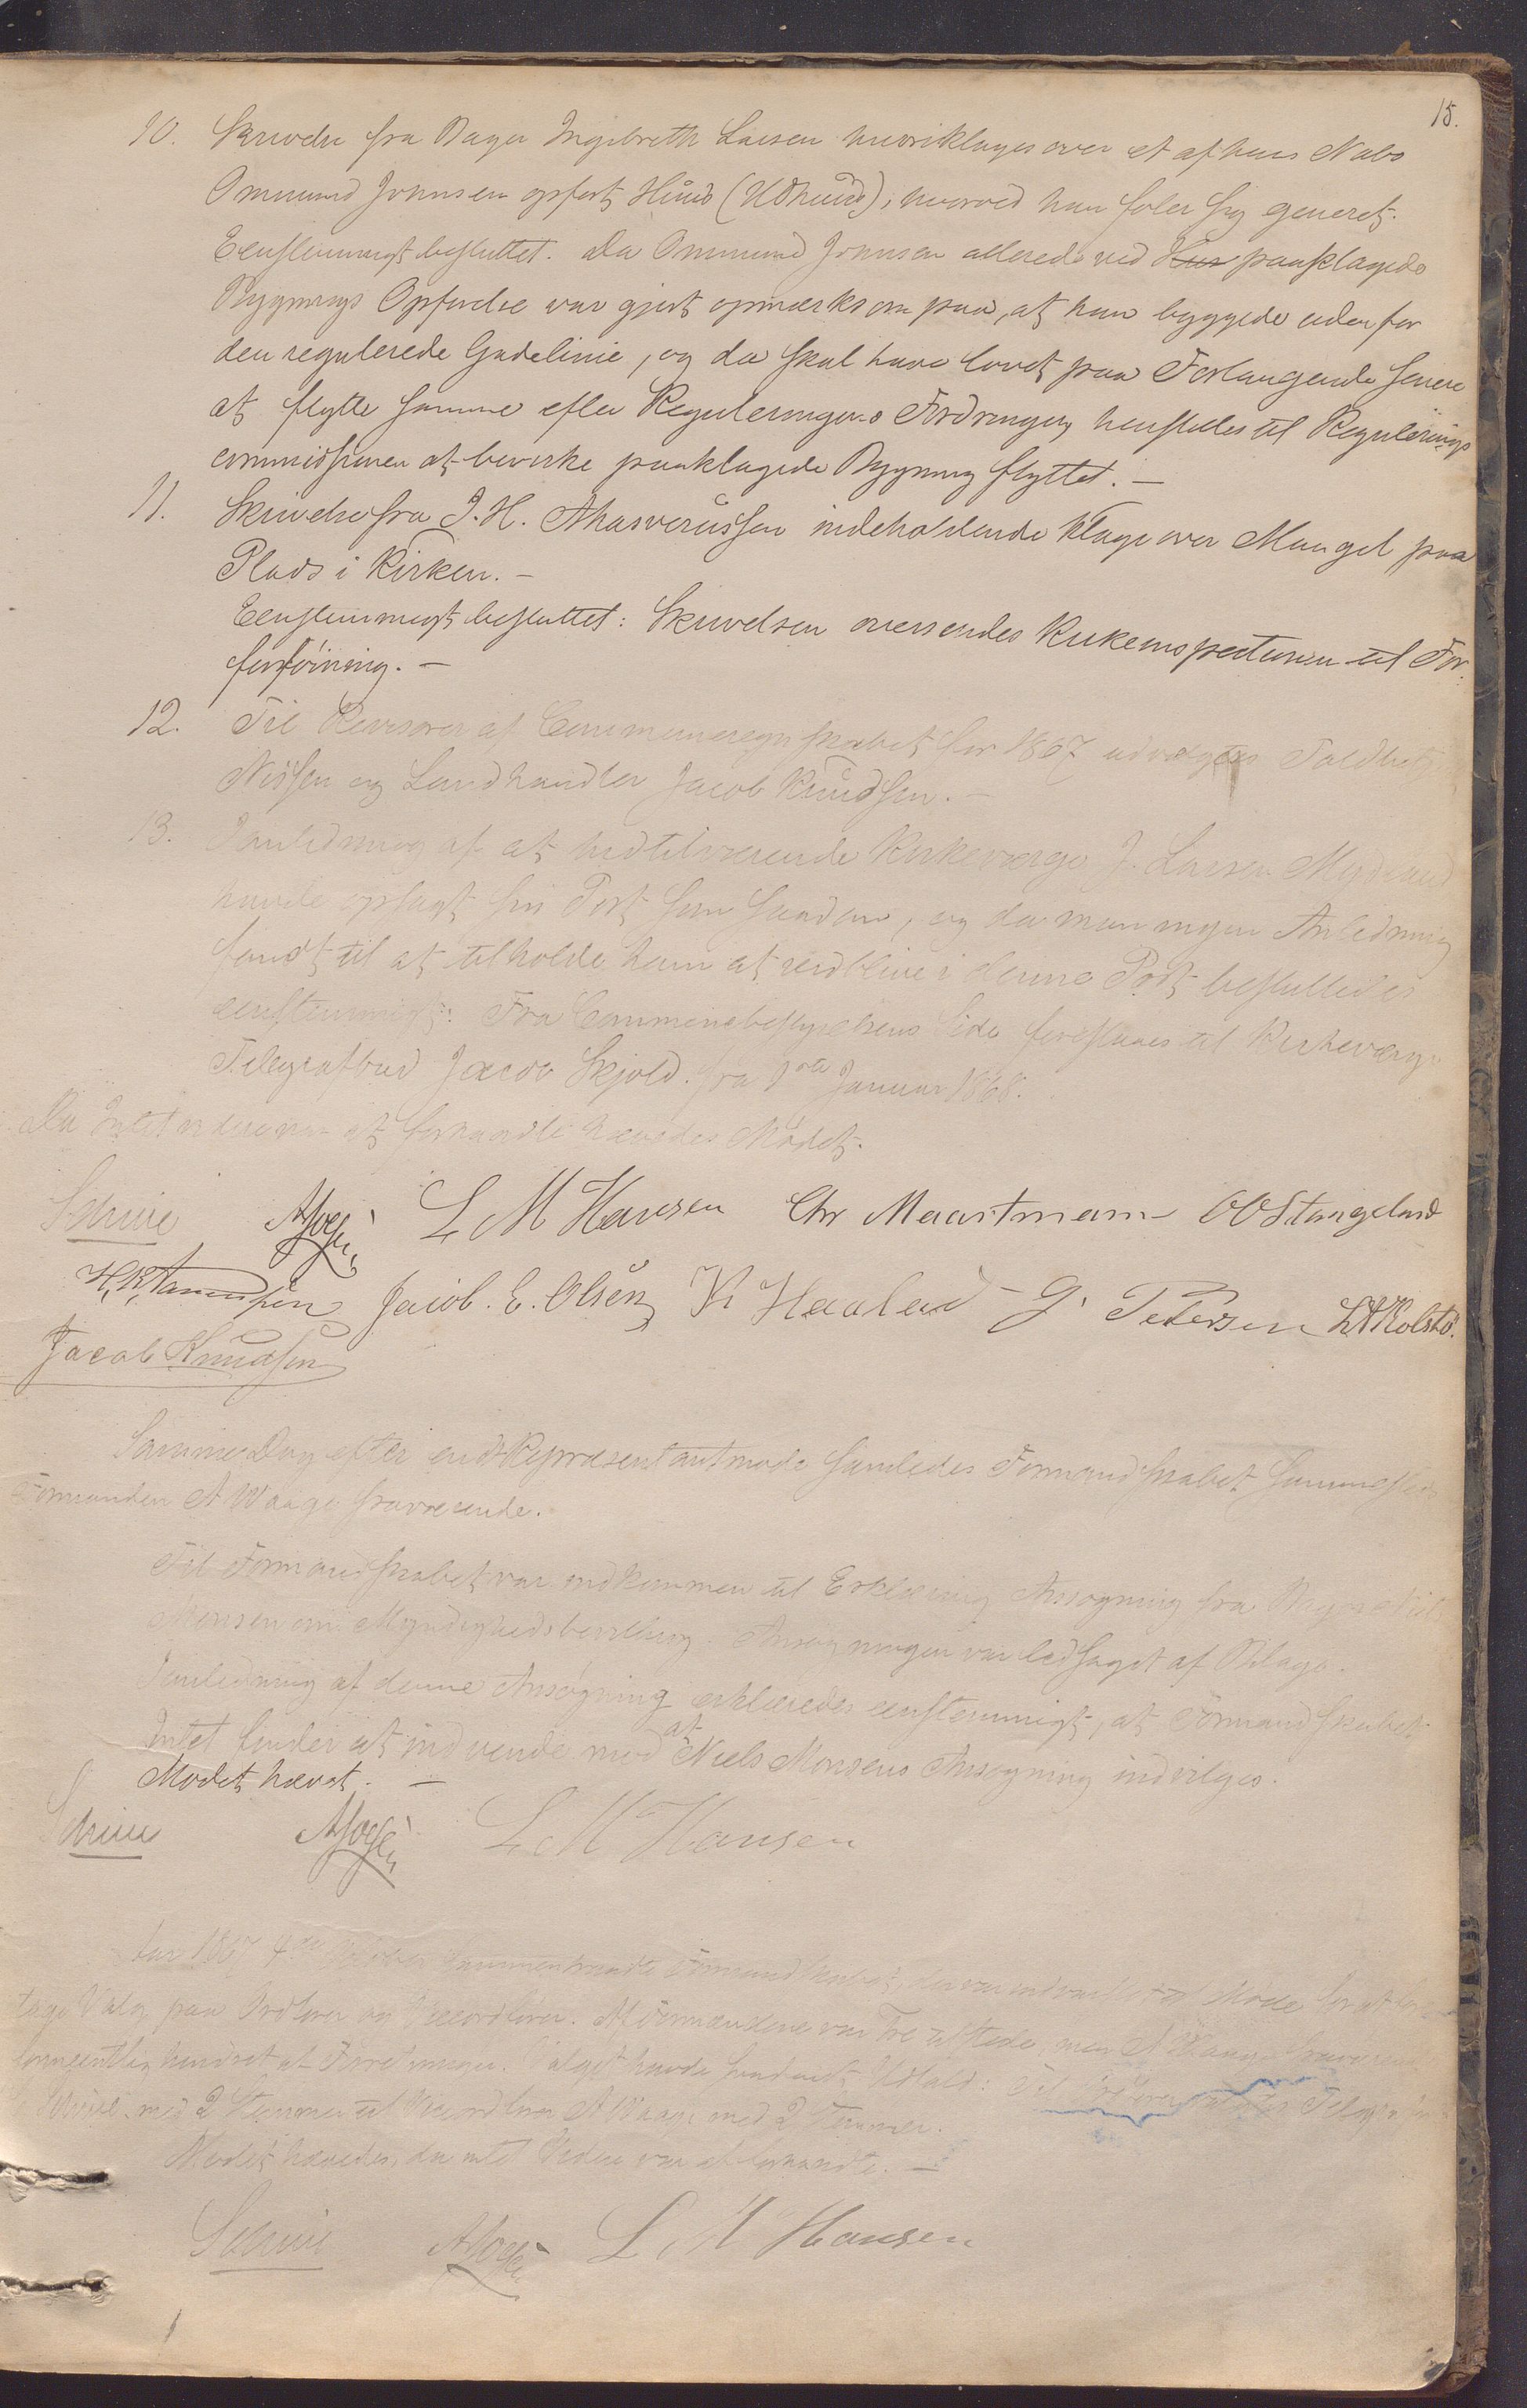 15.
10. Skrivelse fra Bager Ingebreth Larsen hvori klages over et af hans Nabo
Ommund Johnsen opført Huus (Udhuus), hvorved han føler sig generet.
Eenstemmigt besluttet. Da Ommund Johnsen allerede ved paaklagede
Bygnings Opførelse var gjort opmærksom paa, at han byggede uden for
den regulerede Gadelinie, og da skal have lovet paa Forlangende senere
at flytte samme efter Reguleringens Fordringer, henstilles til Regulerings
commissionen at bevirke paaklagede Bygning flyttet. —
11. Skrivelse fra J. H. Ahasverussen indeholdende Klage over Mangel paa
Plads i Kirken. —
Eenstemmigt besluttet: Skrivelsen oversendes Kirkeinspectionen til For
forføining. —
12. Til Revisorer af Communeregnskabet for 1867 udvælges Toldbetj.
Nissen og Landhandler Jacob Knudsen. —
13. I Anledning af at hidtilværende Kirkeværge J. Larsen
havde opsagt sin Post som saadan, og da man ingen Anledning
fandt til at tilholde ham at vedblive i denne Post besluttedes
eenstemmigt: Fra Communebestyrelsens Side foreslaaes til Kirkeværge
Telegrafbud Jacob Skjold. fra 1ste Januar 1868.
Da Intet videre var at forhandle hævedes Mødet.
Schiøe L M Hansen Chr Maartmann O O Stangeland
Jacob. E. Olsen K Haaland G. Petersen L A Kolstø.
Jacob Knudsen
Samme Dag efter endt Repræsentantmøde samledes Formandskabet sammesteds
Formanden A Waage fraværende.
Til Formandskabet var indkommen til Erklæring Ansøgning fra Bager Niels
Monsen om Myndighedsbevilling. Ansøgningen var ledsaget af Bilage.
I Anledning af denne Ansøgning erklæredes eenstemmigt, at Formandskabet
Intet finder at indvende mod at Niels Monsens Ansøgning indvilges.
Mødet hævet. —
Schiøe L M Hansen
Aar 1867 4de October sammentraadte Formandskabet, der var indvarslet til Møde for at fore
tage Valg paa Ordfører og Viceordfører. Af Formændene var Tre tilstede, men A Waage fraværende
formentlig hindret af Forretninger. Valget havde saadant Udfald: Til Ordfører
Schiøe med 2 Stemmer til Viceordfører A Waage med 2 Stemmer.
Mødet hævedes, da intet Videre var at forhandle. —
Schiøe L M Hansen